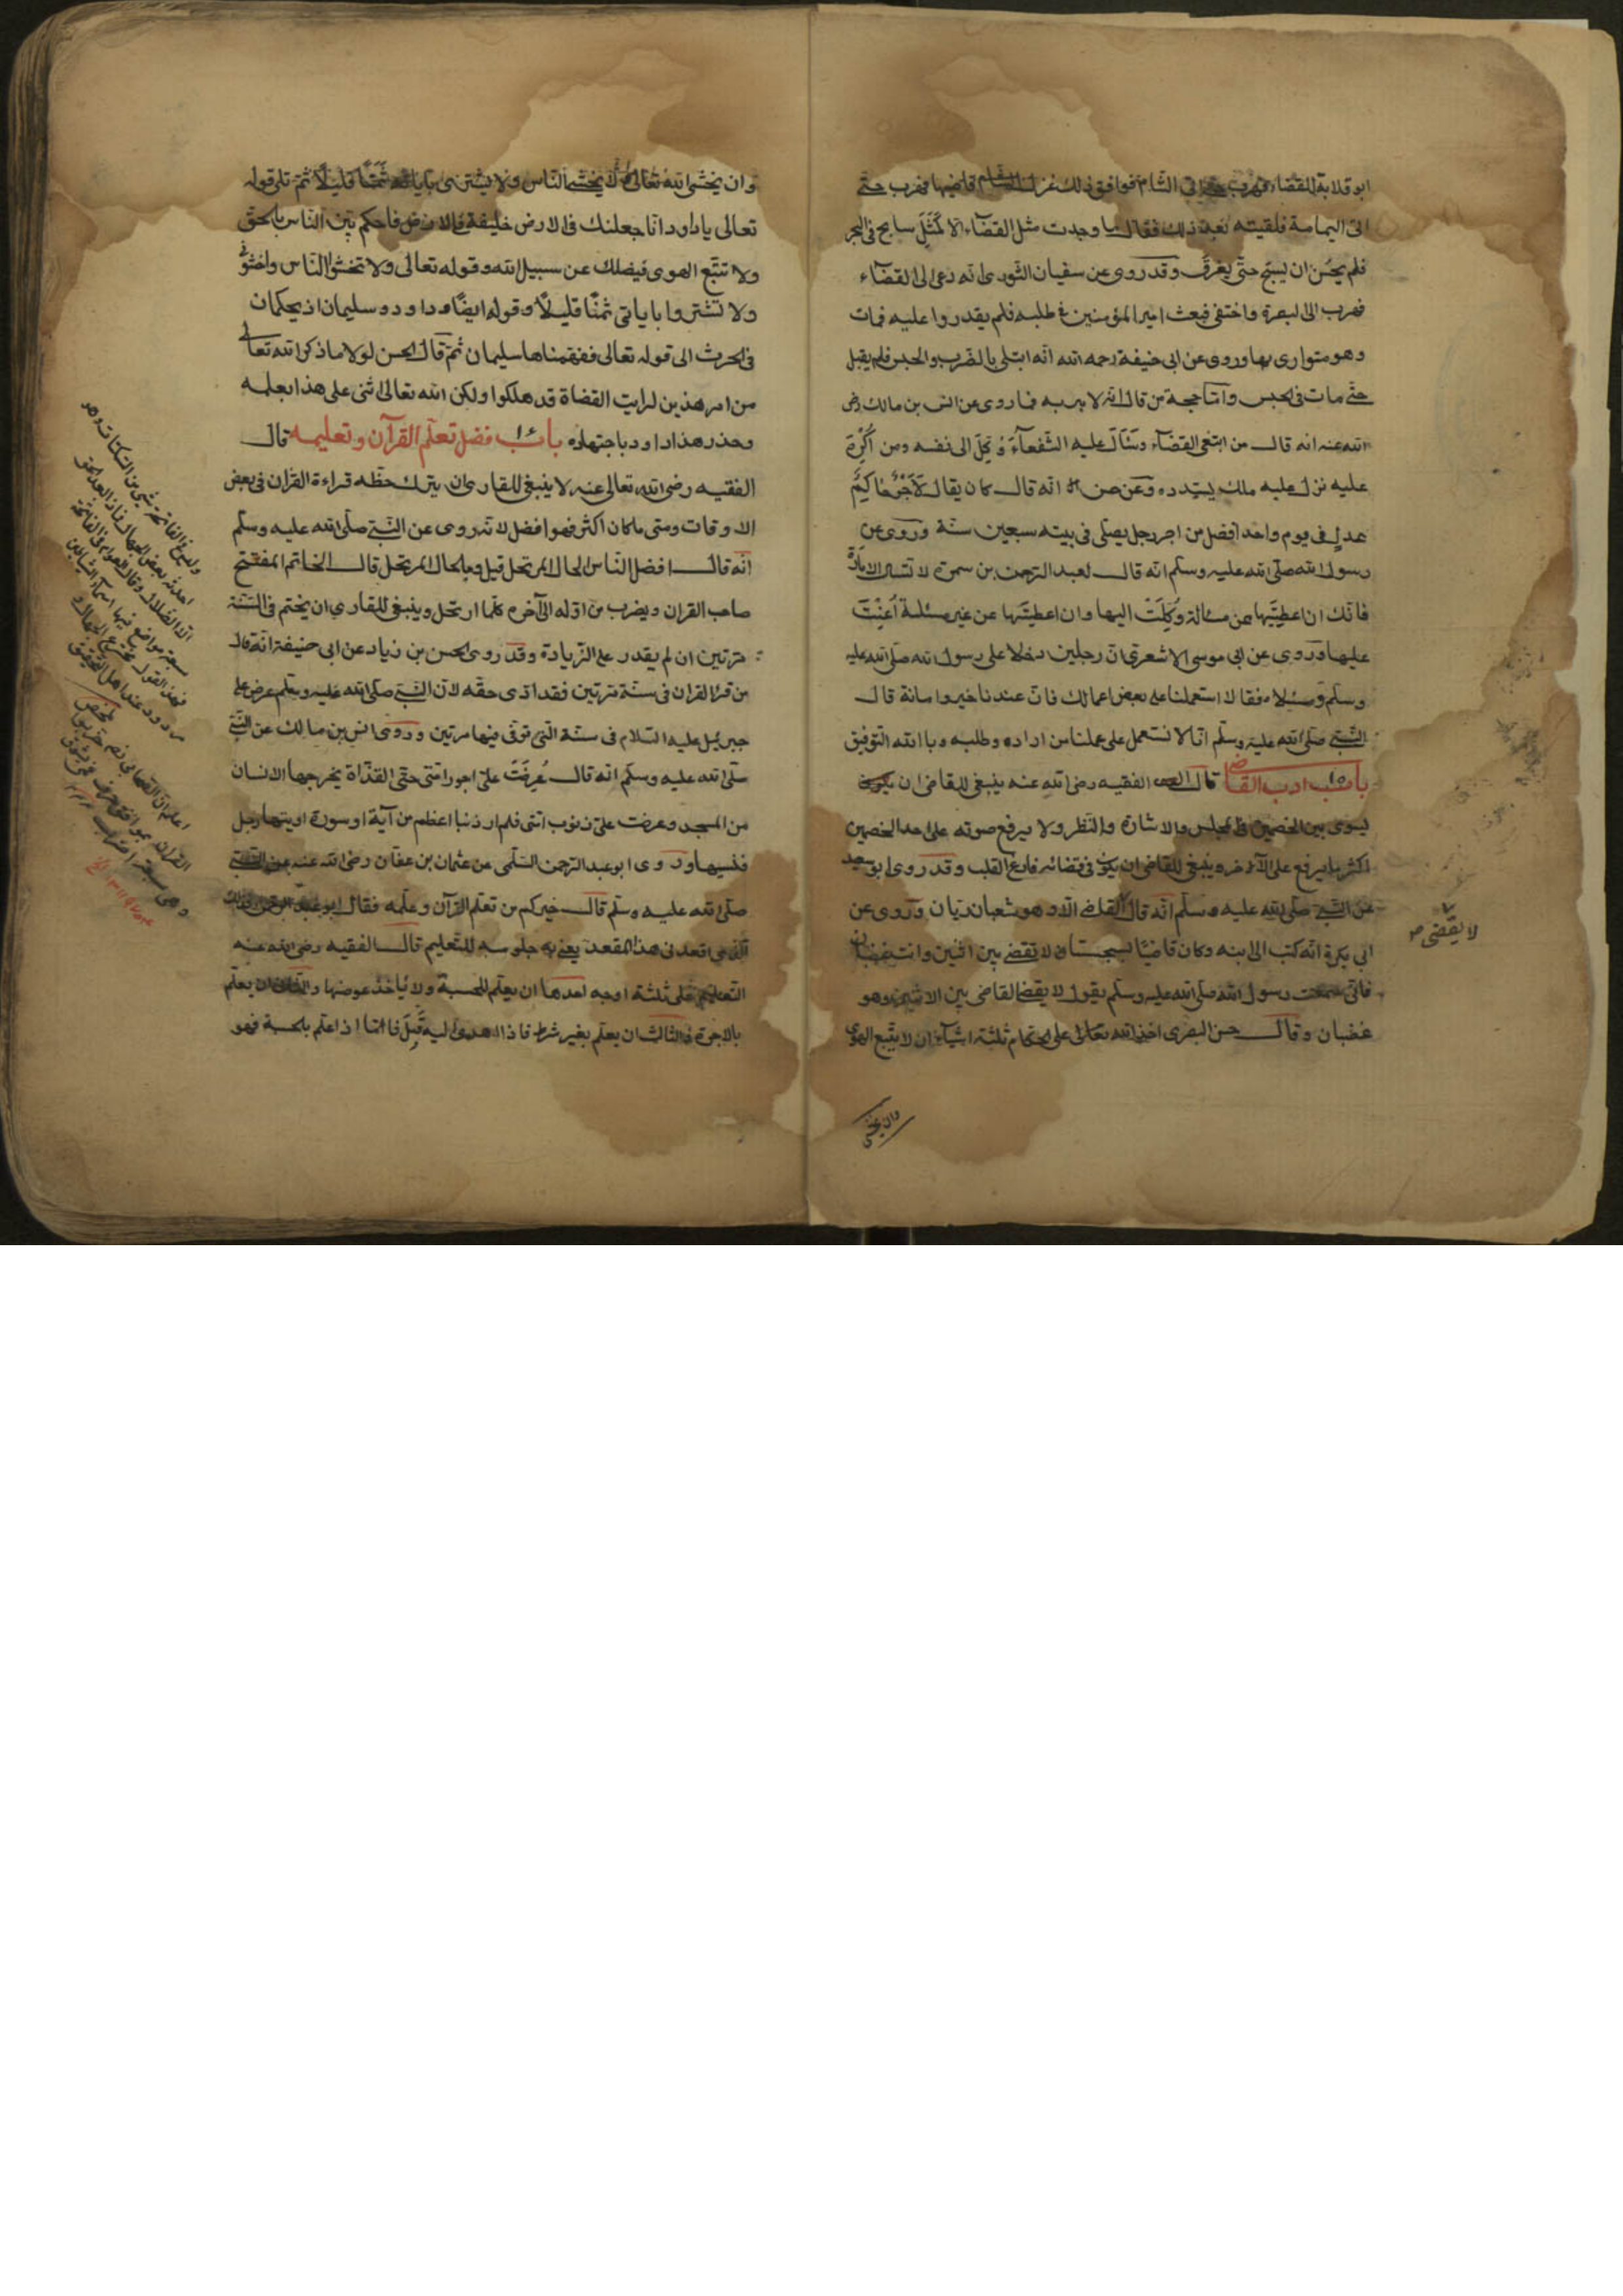 ابو قلابة للقضاء فهرب حتى اتى الشام فوافق ذلك عزل قاضيها فهرب حتى
اتى اليمامة فلقيته بعد ذلك فقال ما وجدت مثل القضاء الا كمثل سابح فى البحر
فلم يحسن ان يسبح حتى يغرق وقد روى عن سفيان الثورى انه دعى الى القضاء
فهرب الى البصرة واختفى فبعث امير المؤمنين فى طلبه فلم يقدروا عليه فمات
وهو متوارى بها وروى عن ابى حنيفة رحمه الله انه ابتلى بالضرب والحبس فلم يقبل
حتى مات فى الحبس واما حجة من قال انه لا بأس به فما روى عن انس بن مالك رضى
الله عنه انه قال من ابتغى القضاء وسئال عليه الشفعاء وُكِلَ الى نفسه ومن اُكْرِهَ
عليه نزل عليه ملك يسدده وعن انه قال كان يقال لَاَجْرُ حاكِمٍ
عدلٍ فى يوم واحد افضل من اجر رجل يصلى فى بيته سبعين سنة وروى عن
رسول الله صلى الله عليه وسلم انه قال لعبد الرحمن بن سمرة لا تسئال الامارة
فانك ان اعطيتها عن مسئالة وُكِلْتَ اليها وان اعطيتها عن غير مسئلة اُعِنْتَ
عليها وروى عن ابى موسى الاشعرى ان رجلين دخلا على رسول الله صلى الله عليه
وسلم فقالا استعملنا على بعض اعمالك فان عندنا خيرا وامانة قال
النبى صلى الله عليه وسلم انا لا نستعمل على عملنا من اراده وطلبه وبا الله التوفيق
باب ١٥ ادب القاضى قال الفقيه رضى الله عنه ينبغى للقاضى ان
يسوى بين الخصمين فى المجلس والاشارة والنظر ولا يرفع صوته على احد الخصمين
اكثر ما يرفع على الآخر وينبغى للقاضى ان يكون فى قضائه فارغ القلب وقد روى ابو سعيد
عن النبى صلى الله عليه وسلم انه قال القاضى الا وهو شعبان ريان وروى عن
ابى بكرة انه كتب الى ابنه وكان قاضيًا بسجستان لا تقضى بين اثنين وانت غضبان
فانى سمعت رسول الله صلى الله عليه وسلم يقول لا يقضى القاضى بين الاثنين وهو
غضبان وقال حسن البصرى اخذ الله تعالى على الحكام ثلثة اشياء ان لا يتبع الهوى
وان يخشى
لا يقضى صح
وان يخشى الله تعالى ولا يخشى الناس ولا يشترى بايات الله ثمنا قليلا ثم تلى قوله
تعالى يا داود انا جعلنك فى الارض خليفة فى الارض فاحكم بين الناس بالحق
ولا تتبع الهوى فيضلك عن سبيل الله وقوله تعالى ولا تخشوا الناس واخشونى
ولا تشتروا باياتى ثمنًا قليلًا وقوله ايضًا وداود وسليمان اذ يحكمان
فى الحرث الى قوله تعالى ففهمناها سليمان ثم قال الحسن لولا ما ذكر الله تعالى
من امر هذين لرايت القضاة قد هلكوا ولكن الله تعالى اثنى على هذا بعلمه
وعذر هذا داود باجتهاده باب ١٦ فضل تعلم القرآن وتعليمه قال
الفقيه رضى الله تعالى عنه لا ينبغى للقارى ان يترك حظه قراءة القرآن فى بعض
الاوقات ومتى ما كان اكثر فهو افضل لانه روى عن النبى صلى الله عليه وسلم
انه قال افضل الناس الحال المرتحل قيل وما الحال المرتحل قال الخاتم المفتتح
صاحب القران ويضرب من اوله الى آخره كلما ارتحل وينبغى للقارى ان يختم فى السنة
مرتين ان لم يقدر على الزيادة وقد روى الحسن بن زياد عن ابى حنيفة انه قال
من قرأ القران فى سنة مرتين فقد ادى حقه لان النبى صلى الله عليه وسلم عرض على
جبرئيل عليه السلام فى سنة التى توفى فيها مرتين وروى انس بن مالك عن النبى
صلى الله عليه وسلم انه قال عُرِضَتْ علىّ اجور امتى حتى القذاة يخرجها الانسان
من المسجد وعرضت علىّ ذنوب امتى فلم ار ذنبا اعظم من آية او سورة اوتيها رجل
فنسيها وروى ابو عبد الرحمن السلمى عن عثمان بن عفان رضى الله عنه عن النبى
صلى الله عليه وسلم قال خيركم من تعلم القرآن وعلمه فقال ابو عبد الرحمن فذلك
الذى اقعدنى هذا المقعد يعنى به جلوسه للتعليم قال الفقيه رضى الله عنه
التعليم على ثلثة اوجه احدها ان يعلم للحسبة ولا يأخذ عوضها والثانى ان يعلم
بالاجرة والثالث ان يعلم بغير شرط فاذا اهدى اليه قَبِلَ فاما اذا علم بالحسبة فهو